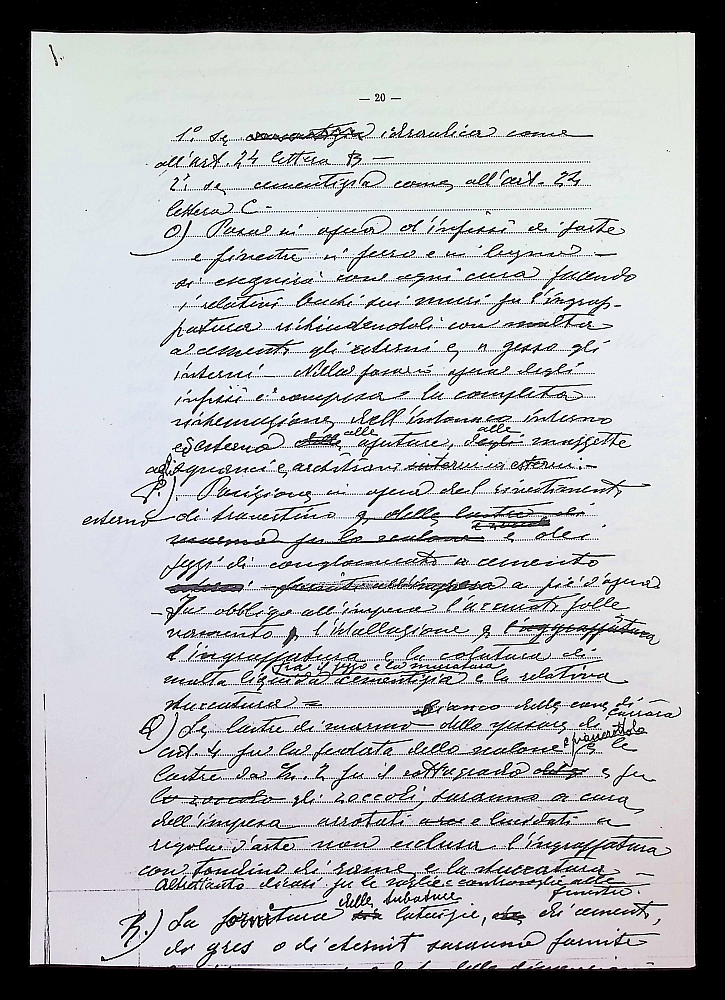 — 20 —
1° se idraulica come
all'art. 24 lettera B —
2° se cementizia come all'art. 24
lettera C -
O) Posa in opera d'infissi di porte
e finestre in ferro e in legno —
si eseguirà con ogni cura facendo
i relativi buchi sui muri per l'ingrap-
patura richiudendoli con malta
a cemento gli esterni e a gesso gli
interni — Nella posa in opera degli
infissi è compresa la completa
dell'intonaco interno
ed esterno delle alle aperture, degli alle mazzette
agli sguanci e architravi interni ed esterni. —
P.) Posizione in opera del rivestimento
esterno di travertino e delle lastre di
marmo per la scalone e dei
pezzi di conglomerato a cemento
forniti dall'impresa a piè d'opera
— Per obbligo all'impresa l'
l'istallazione e l'aggraffatura
l'ingraffatura e la colatura di
fra il pezzo e la muratura
malta liquida cementizia e la relativa
stuccatura =
bianco delle cave di Carrara
Q) Le lastre di marmo dello spessore di
art. 4 per la pedata dello scalone e pianerottolo e le
lastre da Cm. 2 per il sottogrado e per
lo zoccolo gli zoccoli, saranno a cura
dell'impresa arrotati e lucidati a
regola d'arte non esclusa l'ingraffatura
con tondino di rame e la stuccatura —
Altrettanto dicasi per le soglie
finestre.
R.) La fornitura delle tubature laterizie, di cemento,
di gres o di eternit saranno fornite